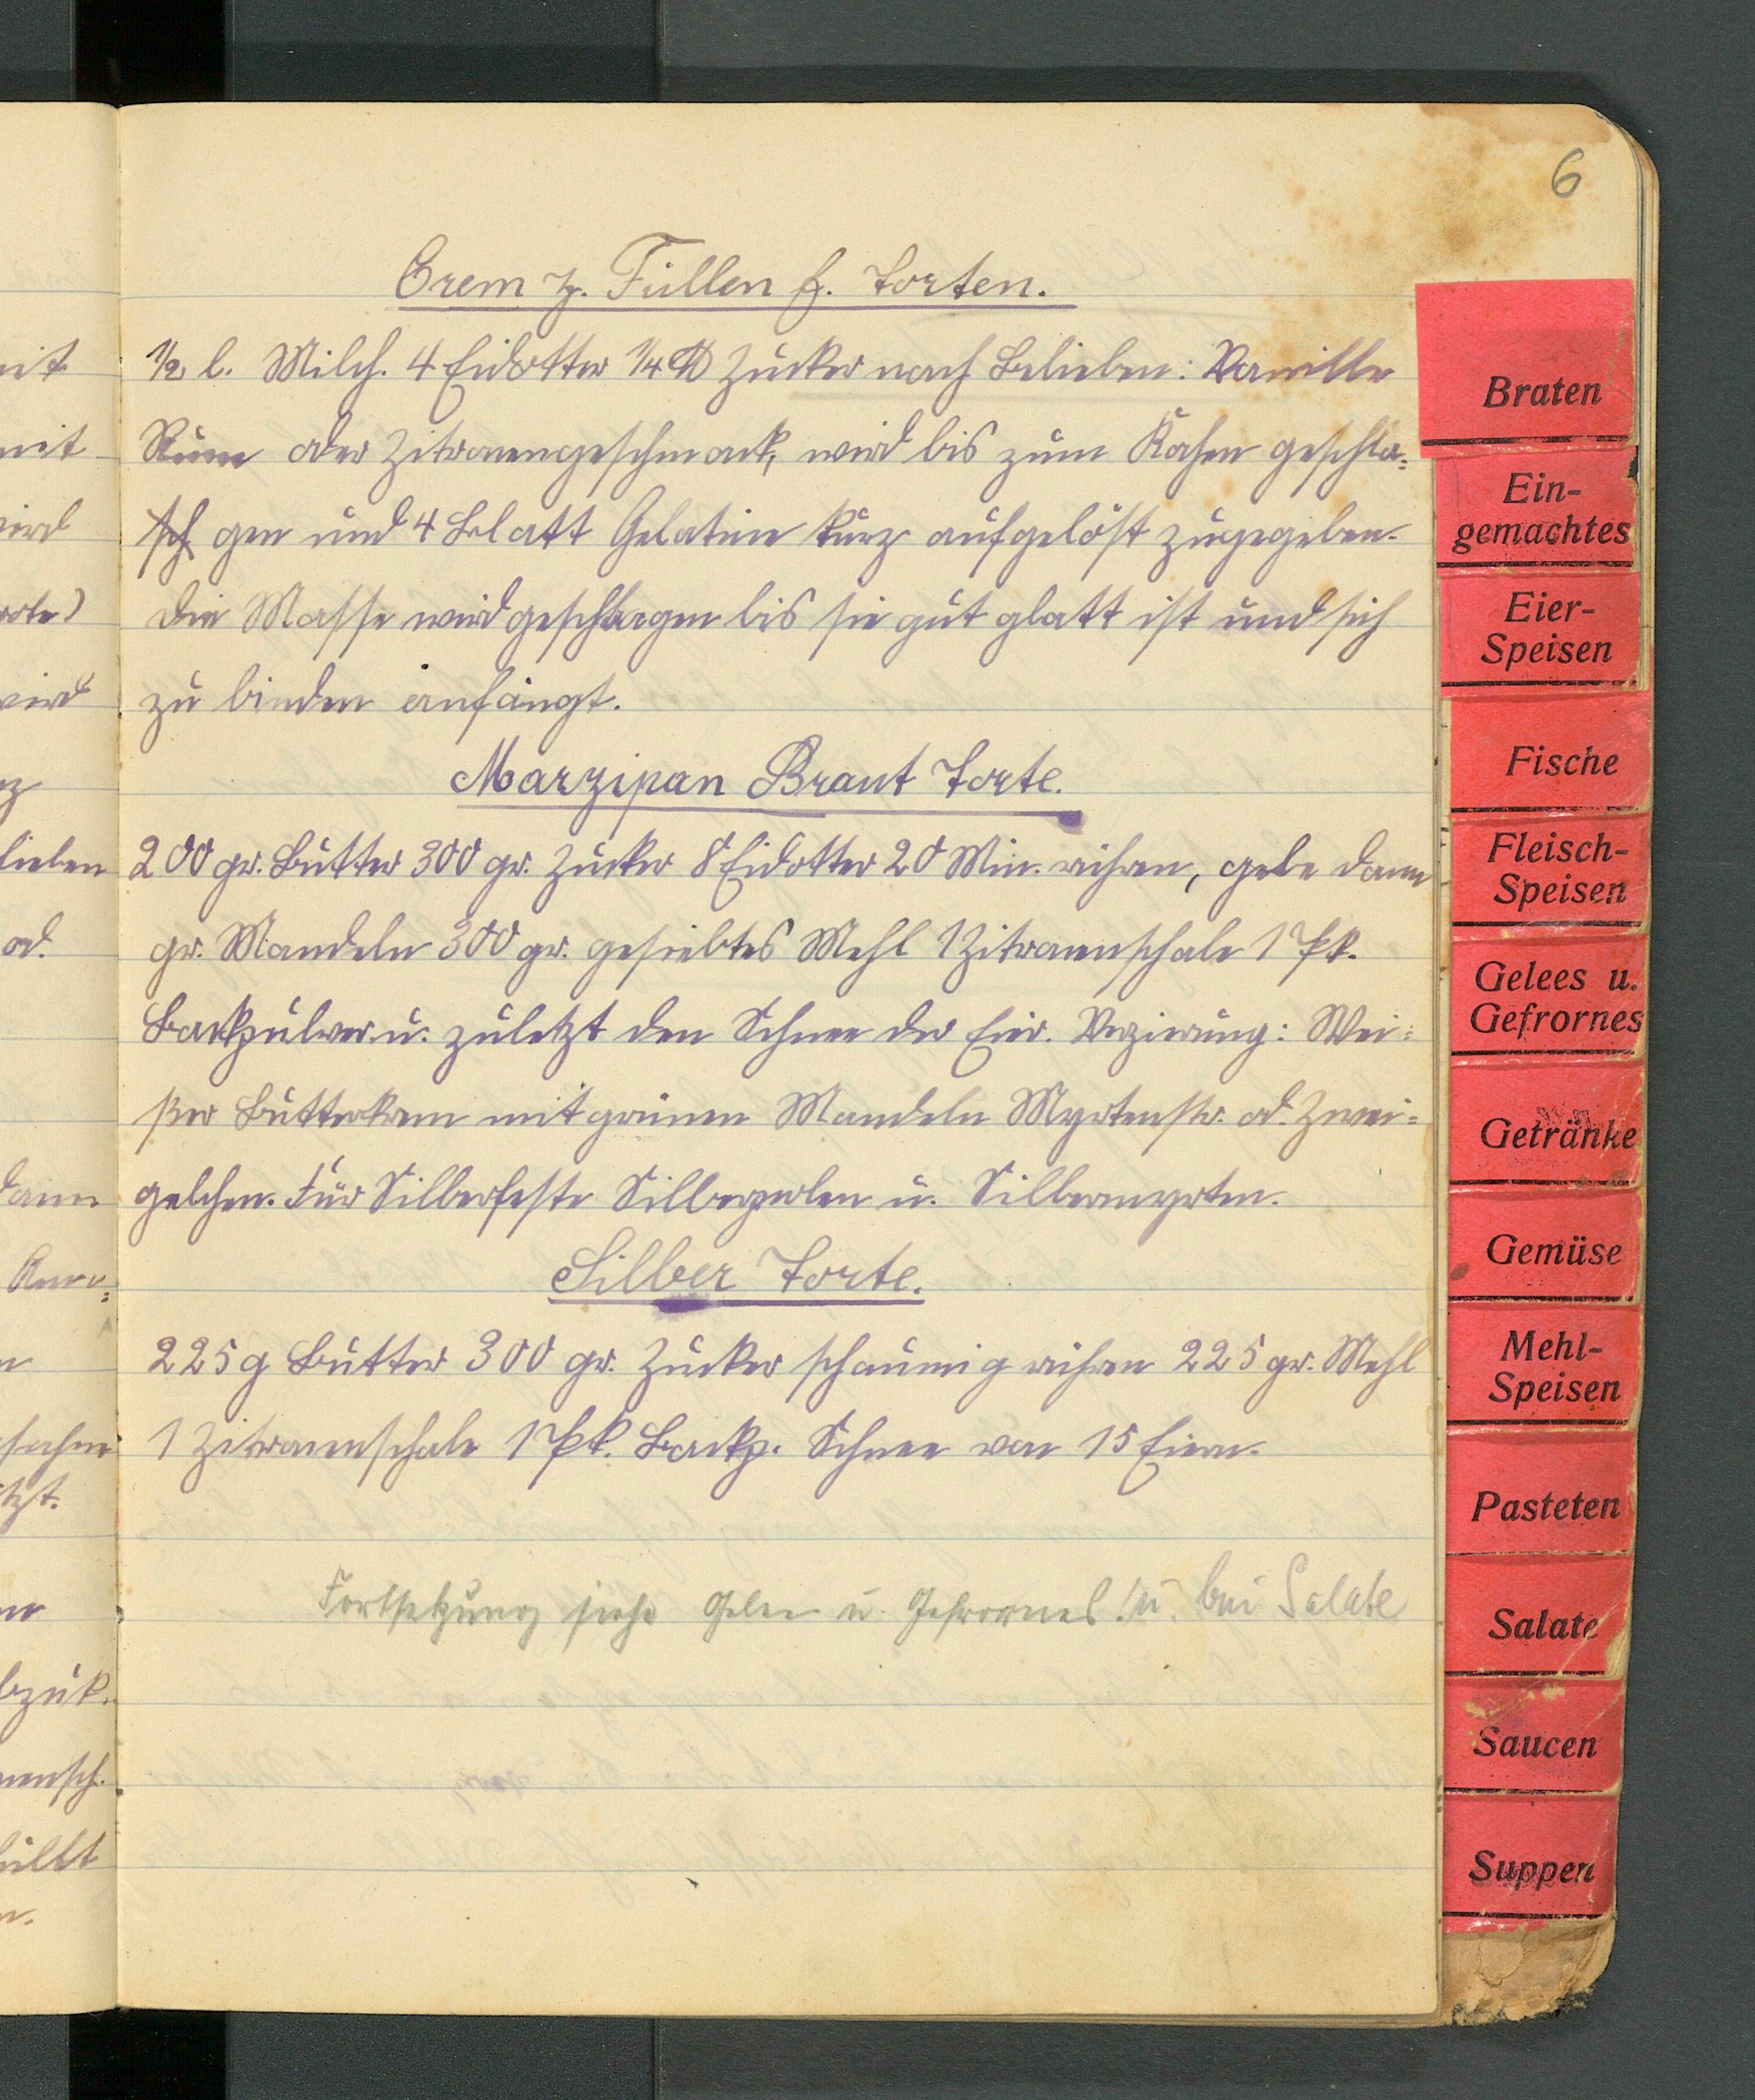 6
Crem z. Füllen f. Torten.
½ l. Milch. 4 Eidotter ¼ ℔ Zucker nach Belieben: Vanille
Rum oder Zitronengeschmack, wird bis zum Kochen geschla=
gen und 4 Blatt Gelatine kurz aufgelöst zugegeben.
Die Masse wird geschlagen bis sie gut glatt ist und sich
zu binden anfängt.
Marzipan Braut Torte.
200 gr. Butter 300 gr. Zucker 8 Eidotter 20 Min. rühren, gebe dann
gr. Mandeln 300 gr. gesiebtes Mehl 1 Zitronenschale 1 Pk.
Backpulver u. zuletzt den Schnee der Eier. Verzierung: Wei=
ßer Butterkrem mit grünen Mandeln Myrtenstr. od. Zwei=
gelchen. Für Silberfeste Silberperlen u. Silbermyrten.
Silber Torte.
225 g Butter 300 gr. Zucker schaumig rühren 225 gr. Mehl
1 Zitronenschale 1 Pk. Backp. Schnee von 15 Eiern.
Fortsetzung siehe Gelee u. Gefrornes! u. bei Salate
Braten
Ein-
gemachtes
Eier-
Speisen
Fische
Fleisch-
Speisen
Gelees u.
Gefrornes
Getränke
Gemüse
Mehl-
Speisen
Pasteten
Salate
Saucen
Suppen